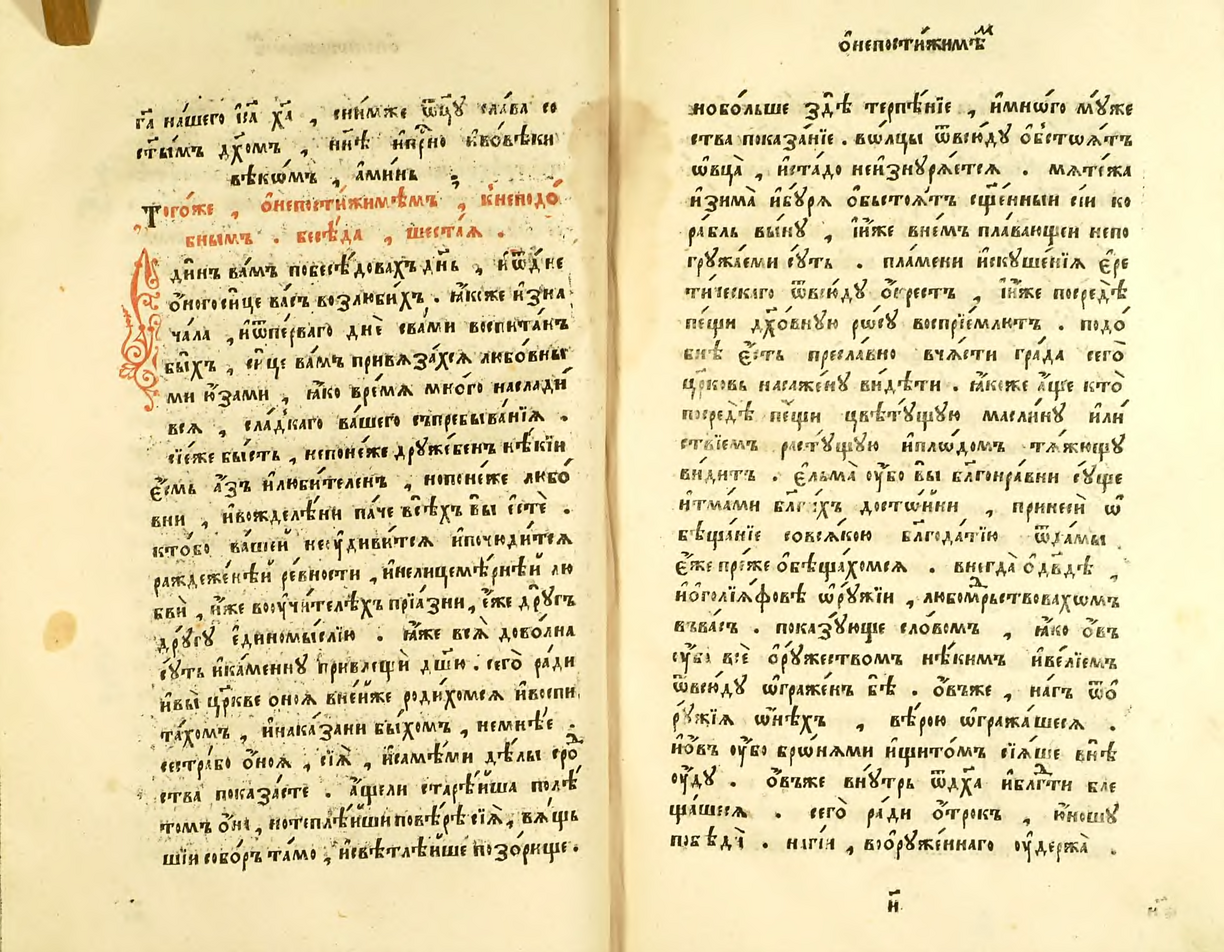 га҃ на́шего і҆са҃ ха҃ , сни́мже ѿц҃у сла́ва со
ст҃ы́мъ дх҃омъ , ны́нѣ и҆при́сно и҆вовѣ́ки
вѣкѡ́мъ , а҆ми́нь .
Того́же , ѻ҆непости́жимѣмъ , кнеподо́
бнымъ . бесѣ́да , шеста́ѧ .
Ди́нъ ва́мъ побесѣ́довахъ дн҃ь , и҆ѿдне
ѻ҆́ного си́це ва́съ возлюби́хъ . ꙗ҆́коже и҆зна
ча́ла , и҆ѿпе́рваго днѐ сва́ми воспита́нъ
бы́хъ , си́це ва́мъ привѧза́хсѧ любо́вны
ми ю҆́зами , ꙗ҆́ко вре́мѧ мно́го наслади́
всѧ , сла́дкаго ва́шего съпребыва́нїѧ .
сїе́же бы́сть , непоне́же друже́бенъ нѣ́кїи
є҆́смь а҆́зъ и҆люби́теленъ , нопоне́же любо́
вни , и҆вожделѣ́ни па́че всѣ́хъ вы̀ є҆стѐ .
кто́бо ва́шей неѹ҆диви́тсѧ и҆почюди́тсѧ
раждеже́ннѣй ре́вности , и҆нелицемѣ́рнѣй лю
бвѝ , ꙗ҆́же воѹ҆чи́телѣхъ прїа́зни , є҆́же дрꙋ́гъ
дрꙋ́гꙋ є҆диномы́слїю . ꙗ҆́же всѧ̀ дово́лна
сꙋ́ть и҆ка́меннꙋ привлещѝ дш҃ꙋ . сего̀ ра́ди
и҆вы̀ цр҃кве ѻ҆ноѧ̀ вне́йже роди́хомсѧ и҆воспи
та́хомъ , и҆наказа́ни бы́хомъ , неме́нѣе .
сестра́бо ѻ҆́ноѧ , сїѧ̀ , и҆самѣ́ми дѣ́лы сро́д
ства показа́сте . а҆́щели старѣ́йша полѣ́
томъ ѻ҆́на , нотеплѣ́йши повѣ́рѣ сїѧ̀ , вѧ́щь
шїи собо́ръ та́мо , и҆свѣтлѣ́йше позо́рище .
ѻ҆непости́жимѣм
нобо́льше здѣ̀ терпѣ́нїе , и҆мно́го мꙋ́же
ства показа́нїе . во́лцы ѿвсю́дꙋ ѻ҆бстоѧ́тъ
ѻ҆́вца̀ , и҆ста́до неи҆знꙋрѧ́етсѧ . мѧте́жа
и҆зима̀ и҆бꙋ́рѧ ѻ҆быстоѧ́тъ сщ҃е́нныи сі́и ко
ра́бль вы́нꙋ , и҆и҆́же вне́мъ пла́вающеи непо
грꙋжа́еми сꙋ́ть . пла́мени и҆скꙋше́нїѧ є҆ре
ти́ческаго ѿвсю́дꙋ ѻ҆́крестъ , и҆и҆́же посредѣ̀
пе́щи дх҃о́внꙋю ро́сꙋ воспрїе́млютъ . подо́
бнѣ є҆́сть пресла́вно вча́сти гра́да сего̀
цр҃ковь насажденꙋ ви́дѣти . ꙗ҆́коже а҆́ще кто̀
посредѣ̀ пе́щи цвѣтꙋ́щꙋю ма́слинꙋ и҆ли́
ствїемъ растꙋ́щꙋю и҆плодо́мъ тѧ́жющꙋ
ви́дитъ . є҆льма̀ ѹ҆́бо вы̀ бл҃гонра́вни сꙋ́ще
и҆тма́ми бл҃ги́хъ досто́йни , принеси́ ѡ҆
бѣща́нїе совсѧ́кою бл҃года́тїю ѿда́мы
є҆́же пре́же ѻ҆бѣща́хомсѧ . внегда̀ ѻ҆дв҃дѣ ,
и҆оголїѧ́фовѣ ѻ҆рꙋ́жїи , любомꙋ́дрьствовахомъ
въва́съ . показꙋ́юще сло́вомъ , ꙗ҆́ко ѻ҆́въ
ѹ҆́бо все ѻ҆рꙋ́жествомъ нѣ́кимъ и҆ве́лїемъ
ѿвсю́дꙋ ѡ҆гражде́нъ бѣ̀ . ѻ҆́въже , на́гъ ѿѻ҆
рꙋ́жїѧ ѻ҆́нѣхъ , вѣ́рою ѡ҆гражда́шесѧ .
и҆ѻ҆́въ ѹ҆́бо бронѧ́ми и҆щито́мъ сїѧ́ше внѣ̀
ѹ҆́дꙋ . ѻ҆́въже внꙋ́трь ѿдх҃а и҆бл҃гти бле
ща́шесѧ . сего̀ ра́ди ѻ҆́трокъ , ю҆́ношꙋ
побѣдѝ . наги́и , воѻ҆рꙋже́ннаго ѹ҆держа̀ .
и҃